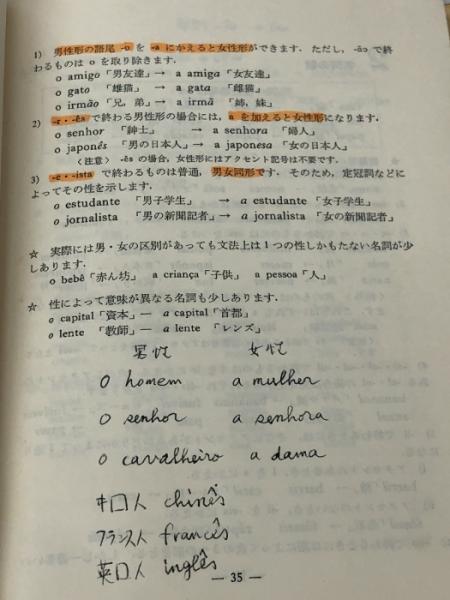 1) 男性形の語尾 -o を -a にかえると女性形ができます. ただし, -ão で終
わるものは o を取り除きます.
o amigo「男友達」→ a amiga「女友達」
o gato 「雄猫」 → a gata 「雌猫」
o irmão「兄, 弟」→ a irmã 「姉, 妹」
2) -r・-ês で終わる男性形の場合には, a を加えると女性形になります.
o senhor 「紳士」 → a senhora 「婦人」
o japonês 「男の日本人」→ a japonesa「女の日本人」
〈注意〉 -ês の場合, 女性形にはアクセント記号は不要です.
3) -e・-ista で終わるものは普通, 男女同形です. そのため, 定冠詞などに
よってその性を示します.
o estudante 「男子学生」 → a estudante 「女子学生」
o jornalista 「男の新聞記者」→ a jornalista 「女の新聞記者」
☆ 実際には男・女の区別があっても文法上は1つの性しかもたない名詞が少
しあります.
o bebê「赤ん坊」 a criança「子供」 a pessoa「人」
☆ 性によって意味が異なる名詞も少しあります.
o capital「資本」— a capital「首都」
o lente 「教師」— a lente 「レンズ」
男性 女性
o homem a mulher
o senhor a senhora
o cavalheiro a dama
中口人 chinês
フランス人 francês
英口人 inglês
— 35 —